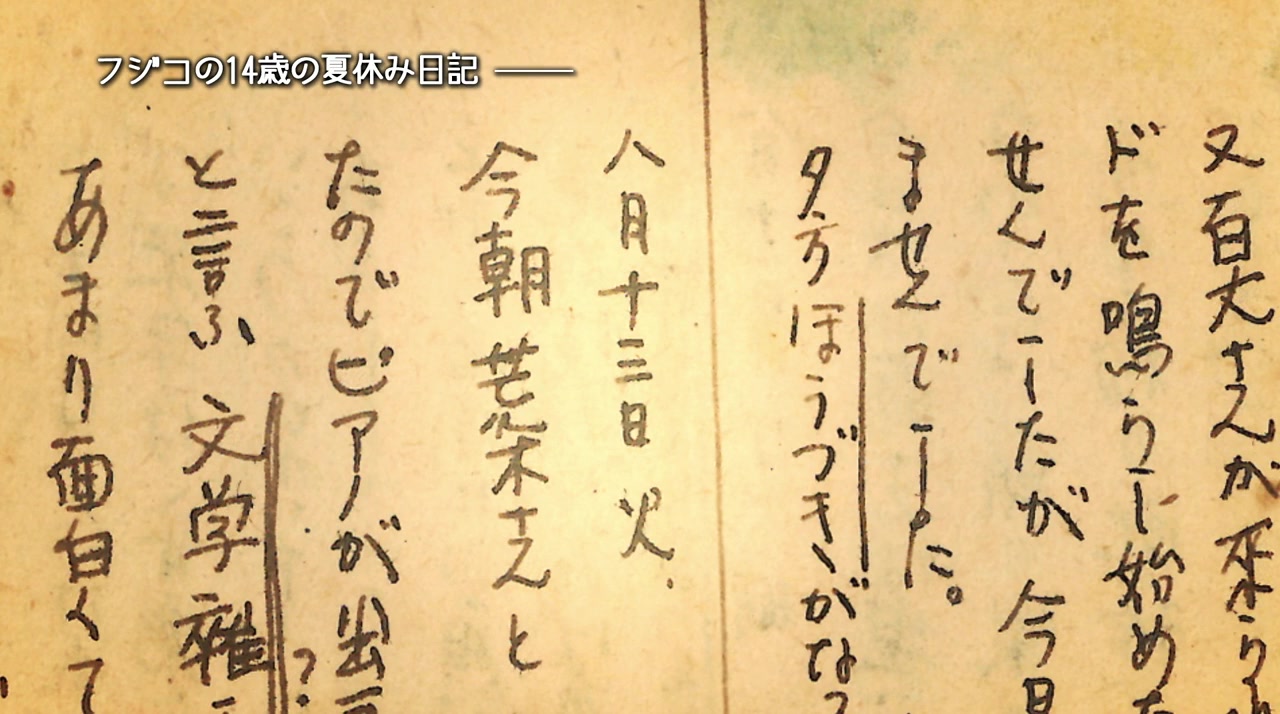 フジコの14歳の夏休み日記
又百丈さんが来ら
ドを鳴らし始めた
せんでーしたが今日
ませんでーした。
夕方ほうづきがな
八月十三日火.
今朝荒木さんと
たのでピアノが出
と言ふ文学雑
?
あまり面白くて